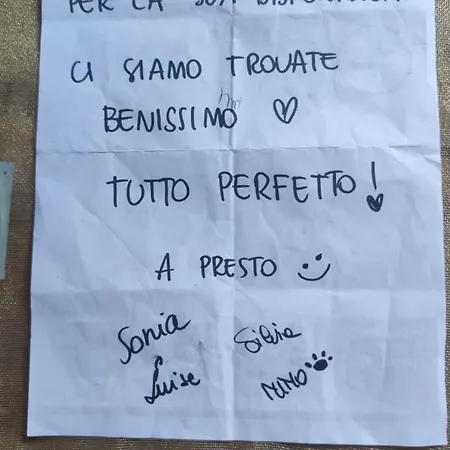 PER LA SUA
CI SIAMO TROVATE
BENISSIMO
TUTTO PERFETTO!
A PRESTO
Sonia Silvia
Luise MIMO